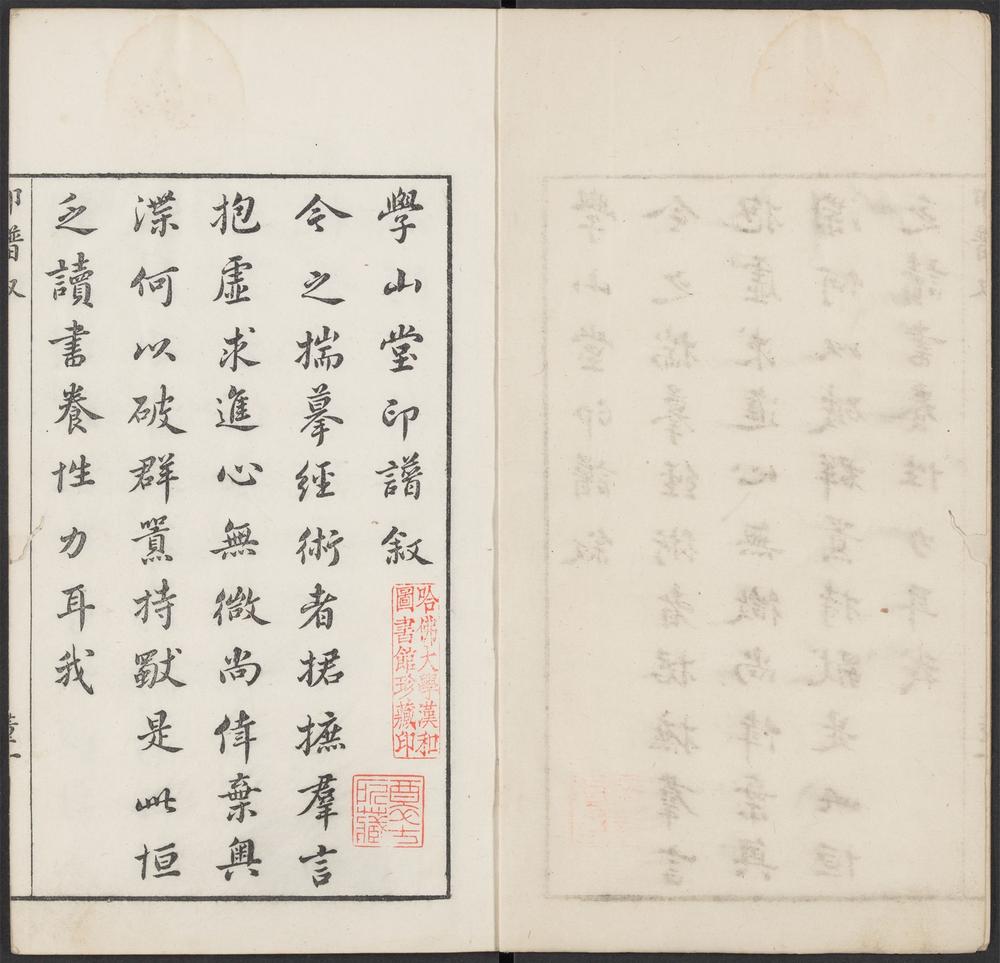 學山堂印譜叙
今之揣摹經術者捃摭羣言
抱虛求進心無微尚偉棄輿
渫何以破群嚣持
是此恒
乏讀書養性力耳我
哈佛大學漢和
圖書館珍藏印
印譜叙
董一